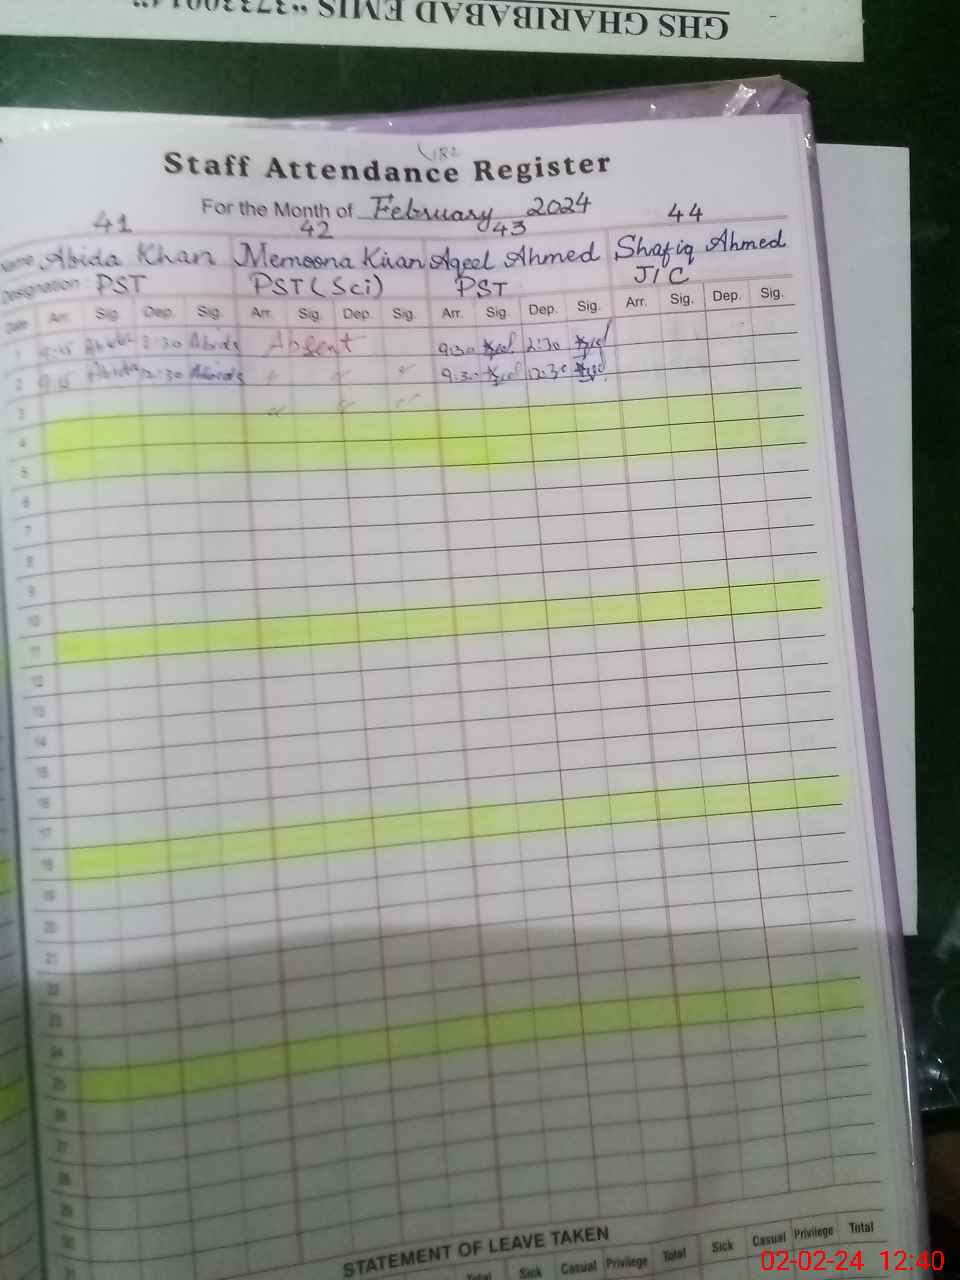 GHS GHARIBABAD EMIS "373300
182
Staff Attendance Register
For the Month of February 2024
41 42 43 44
Name Abida Khan Memoona Kiran Aqeel Ahmed Shafiq Ahmed
Designation PST PST (Sci) PST J/C
Date Arr. Sig. Dep. Sig. Arr. Sig. Dep. Sig. Arr. Sig. Dep. Sig. Arr. Sig. Dep. Sig.
1 9:15 Abida 2:30 Abida Absent 9:30 2:30
2 9:15 Abida 12:30 Abida " " " 9:30 12:30
3 " " "
4
5
6
7
8
9
10
11
12
13
14
15
16
17
18
19
20
21
22
23
24
25
26
27
28
29
30
31
STATEMENT OF LEAVE TAKEN
Total Sick Casual Privilege Total Sick Casual Privilege Total
02-02-24 12:40